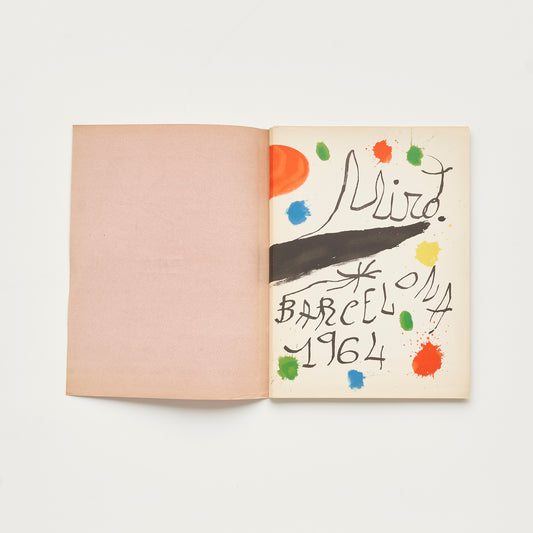 Miró.
BARCELONA
1964